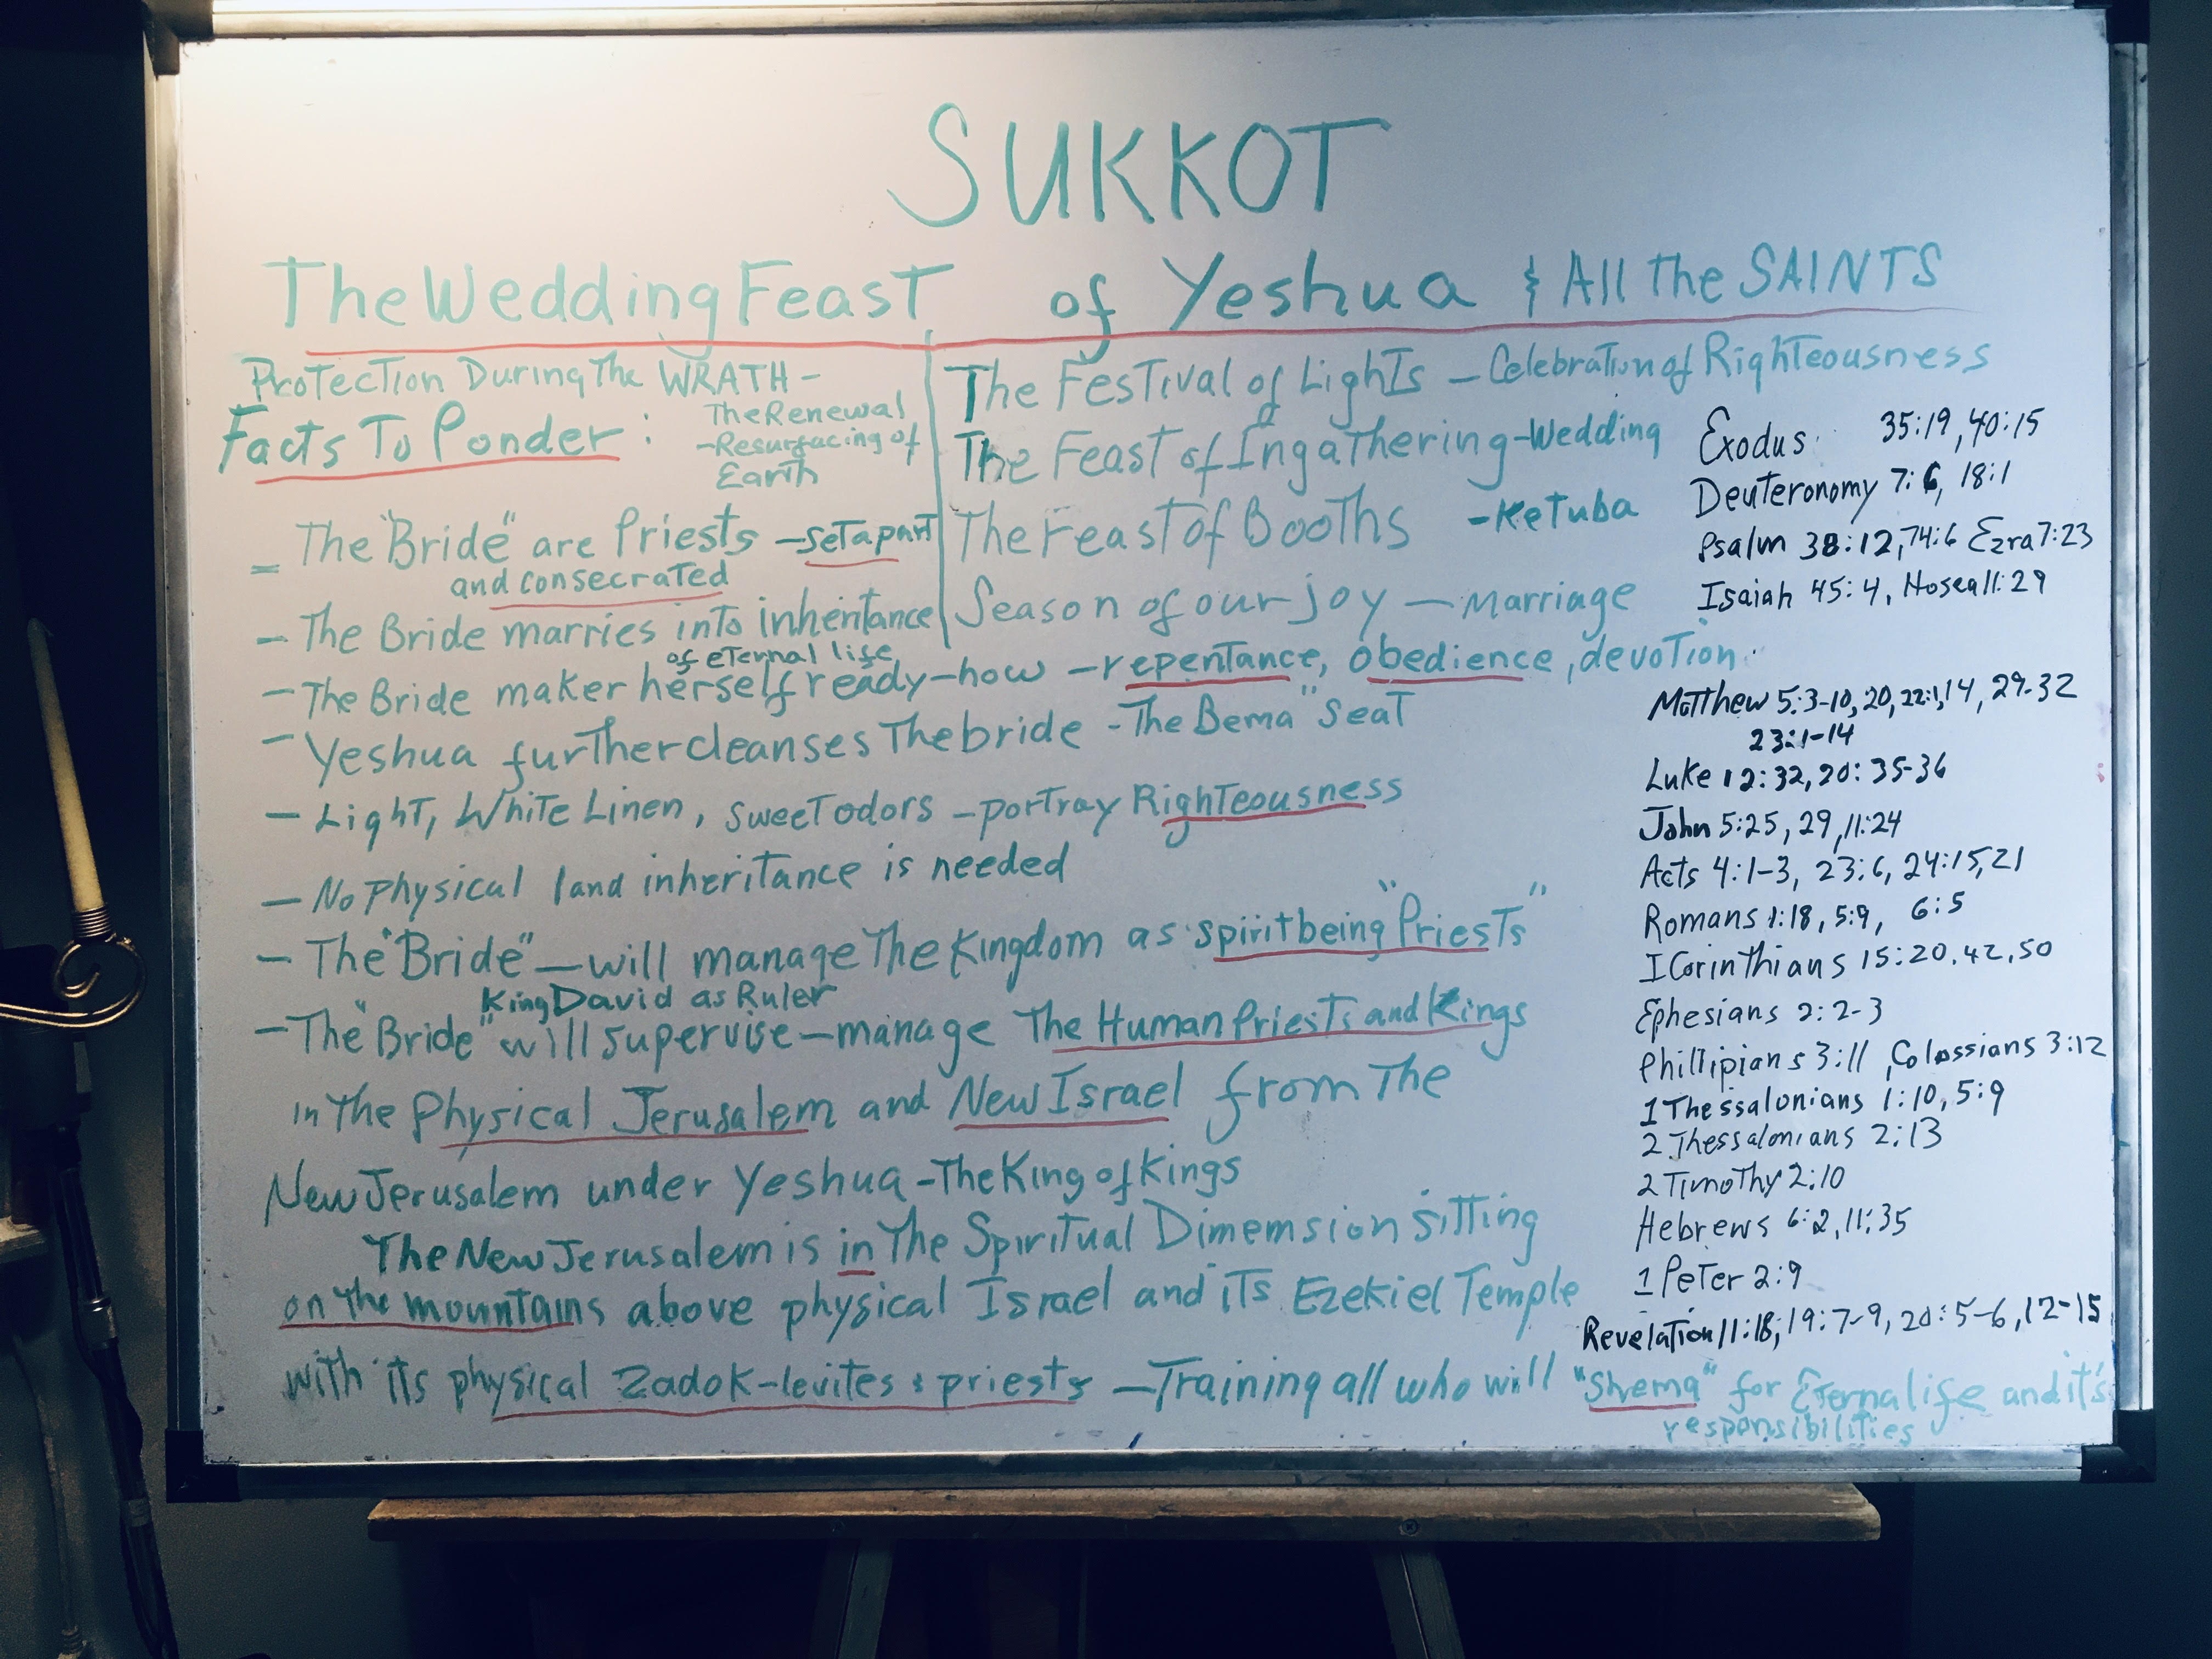 SUKKOT
The Wedding Feast of Yeshua & All The SAINTS
Protection During The WRATH -
The Renewal
-Resurfacing of
Earth
Facts To Ponder:
= The "Bride" are Priests - set apart
and consecrated
- The Bride marries into inheritance
of eternal life
The Festival of Lights - Celebration of Righteousness
The Feast of Ingathering - Wedding
The Feast of Booths - Ketuba
Season of our joy - Marriage
- The Bride maker herself ready - how - repentance, obedience, devotion
- Yeshua further cleanses The bride - The Bema" Seat
- Light, White Linen, sweet odors - portray Righteousness
- No physical land inheritance is needed
- The "Bride" - will manage The Kingdom as spirit being "Priests"
King David as Ruler
- The "Bride" will supervise - manage The Human Priests and Kings
in The Physical Jerusalem and New Israel from The
New Jerusalem under Yeshua - The King of Kings
The New Jerusalem is in The Spiritual Dimemsion sitting
on The mountains above physical Israel and its Ezekiel Temple
with its physical Zadok-levites & priests - Training all who will "Shema" for Eternal life and it's
responsibilities
Exodus 35:19, 40:15
Deuteronomy 7:6, 18:1
Psalm 38:12, 74:6 Ezra 7:23
Isaiah 45:4, Hosea 11:29
Matthew 5:3-10, 20, 22:1, 14, 29-32
23:1-14
Luke 12:32, 20:35-36
John 5:25, 29, 11:24
Acts 4:1-3, 23:6, 24:15, 21
Romans 1:18, 5:9, 6:5
I Corinthians 15:20, 42, 50
Ephesians 2:2-3
Phillipians 3:11, Colossians 3:12
1 Thessalonians 1:10, 5:9
2 Thessalonians 2:13
2 Timothy 2:10
Hebrews 6:2, 11:35
1 Peter 2:9
Revelation 11:18, 19:7-9, 20:5-6, 12-15